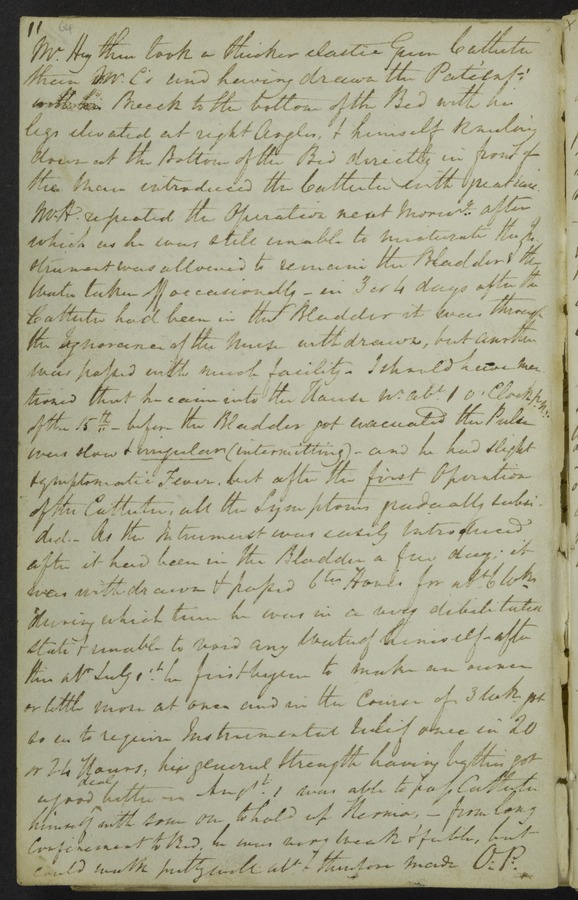 11 64
Mr. Hey then took a thicker elastic Gum Catheter
than Mr. C's and having drawn the Patients
Breech to the bottom of the Bed with his
legs elevated at right Angles, & himself kneeling
down at the Bottom of the Bed directly in front of
the Man introduced the Catheter with great ease.
Mr H. repeated the Operation next Morng. after
which as he was still unable to micturate the In-
strument was allowed to remain the Bladder & the
Water taken off occasionally - in 3 or 4 days after the
Catheter had been in the Bladder it was through
the Ignorance of the Nurse withdrawn, but another
was passed with much facility - I should have men
tioned that he came into the House abt. 10 o'Clock p.m.
of the 15th - before the Bladder got evacuated the Pulse
was slow & irregular (intermitting) - and he had slight
symptomatic Fever, but after the first Operation
of the Catheter, all the Symptoms gradually subsi-
ded - As the Instrument was easily Introduced
after it had been in the Bladder a few days: it
was withdrawn & passed 6 Hours for abt. 6 Wks
during which time he was in a very debilitated
state & unable to void any Water of himself - after
this abt July 1st he first began to make an ounce
or little more at once and in the Course of 3 Weeks got
so as to require Instrumental relief once in 20
or 24 Hours, his general Strength having by this got
a good deal better - Augst. 1 was able to pass Catheter
himself with some one to hold up Hernia, - from long
Confinement to Bed, he was very weak & feeble, but
could walk pretty well abt. & therefore made O.P.